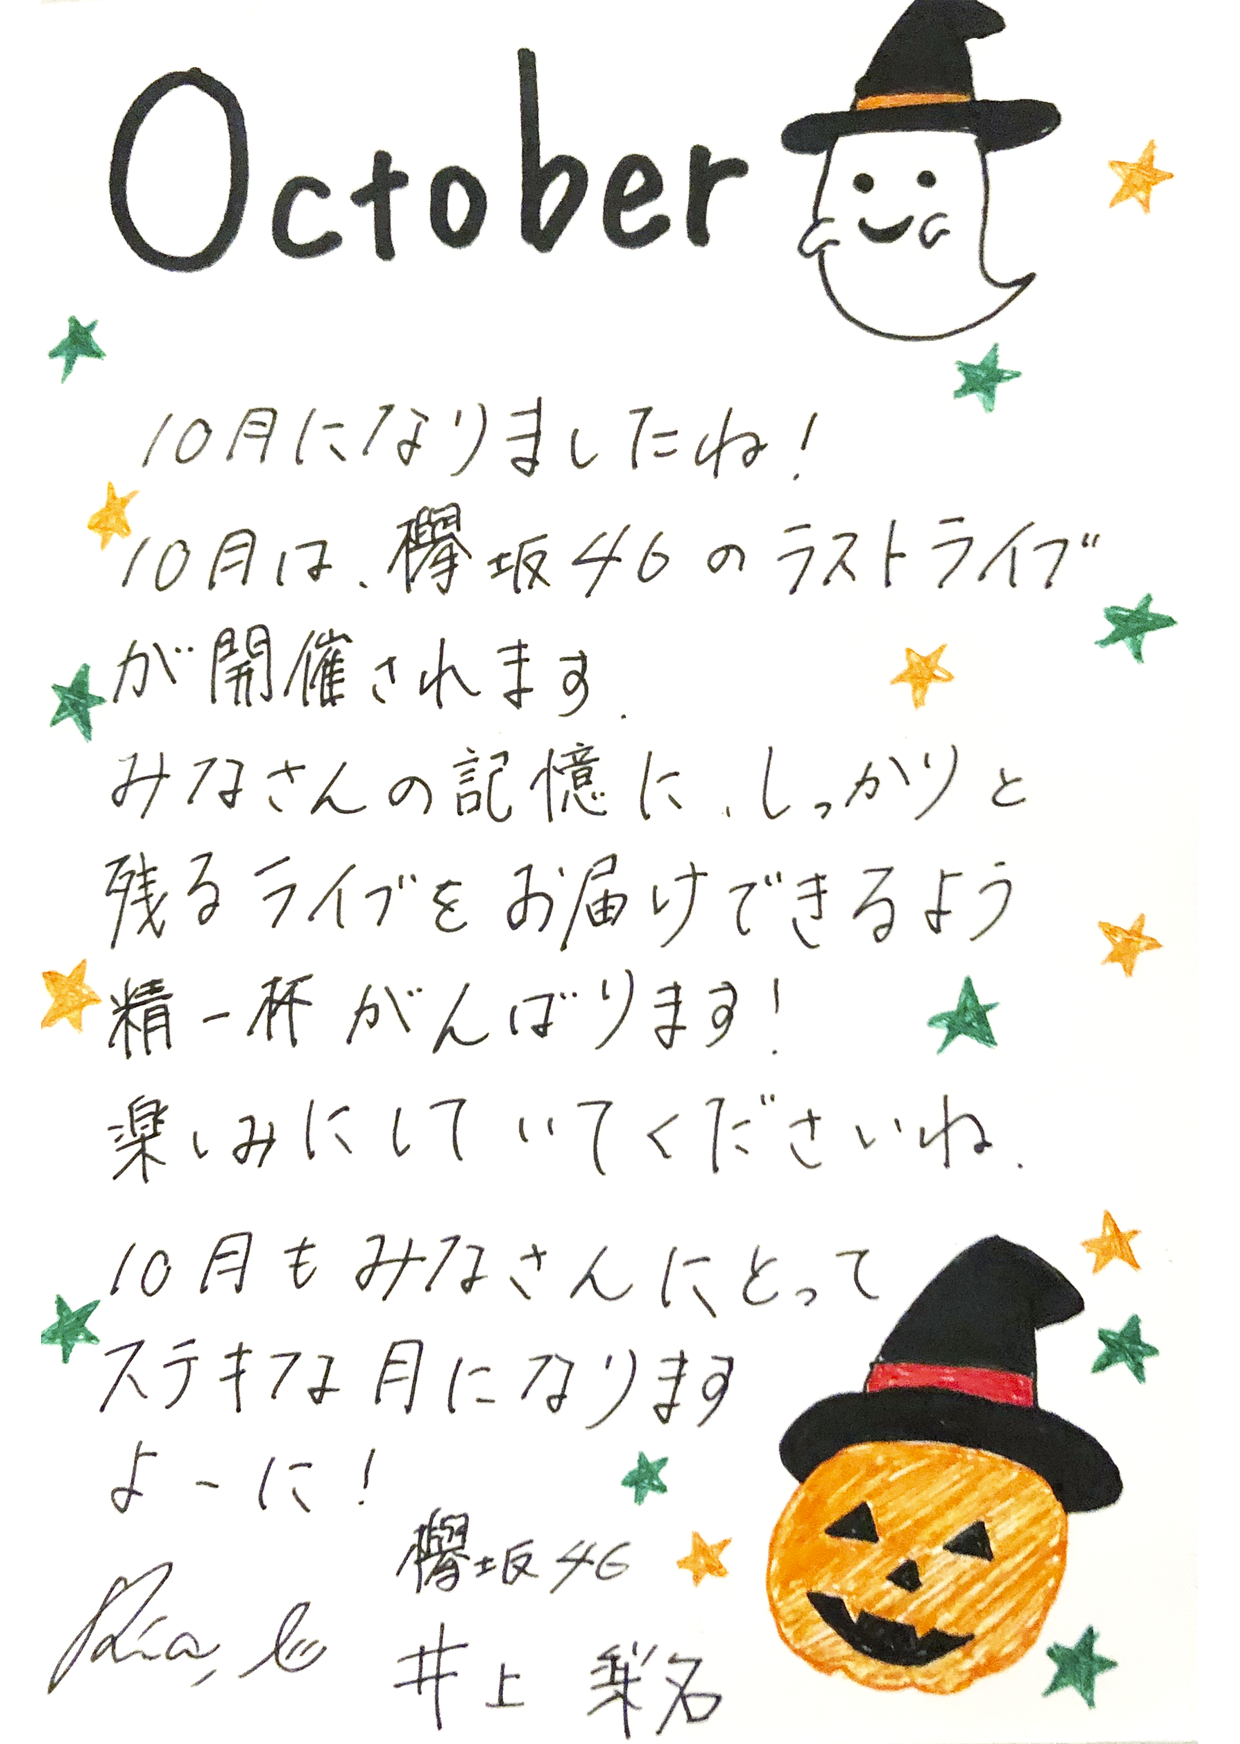 October
10月になりましたね!
10月は、欅坂46のラストライブ
が開催されます.
みなさんの記憶に、しっかりと
残るライブをお届けできるよう
精一杯がんばります!
楽しみにしていてくださいね.
10月もみなさんにとって
ステキな月になります
よーに!
欅坂46
井上 梨名